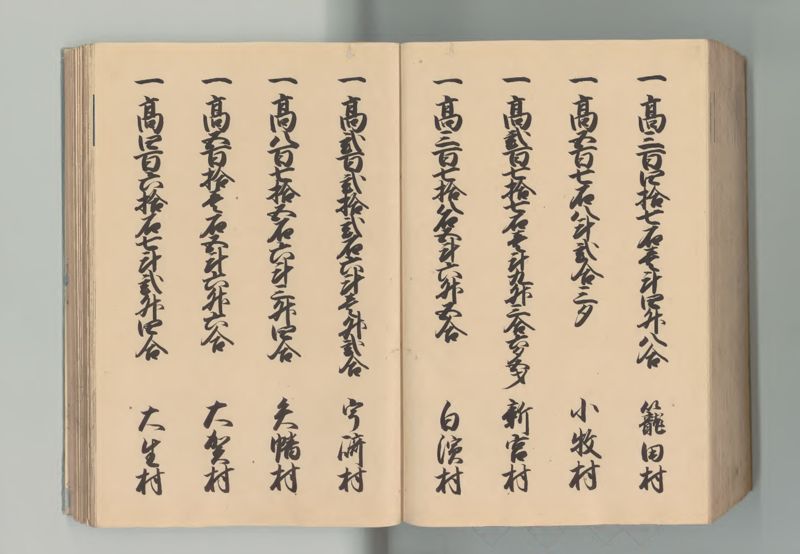 一 高三百四拾七石壱斗四升八合 籠田村
一 高五百七石八斗弐合三夕 小牧村
一 高弐百七拾七石壱斗九升三合六夕 新宮村
一 高三百七拾八石五斗六升五合 白濱村
一 高弐百弐拾弐石六斗壱升弐合 村
一 高八百七拾五石六斗三升四合 矢幡村
一 高五百拾壱石五斗六升六合 大賀村
一 高四百六拾石七斗弐升四合 大生村